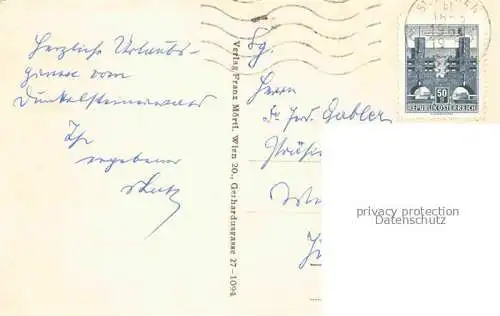 Herzliche Urlaubs-
grüsse vom
Dunkelsteinerwald
Ihr
ergebener
Verlag Franz Mörtl, Wien 20., Gerhardusgasse 27-1094
Sg.
Herrn
Dr. Gabler
50
REPUBLIK ÖSTERREICH
privacy protection
Datenschutz